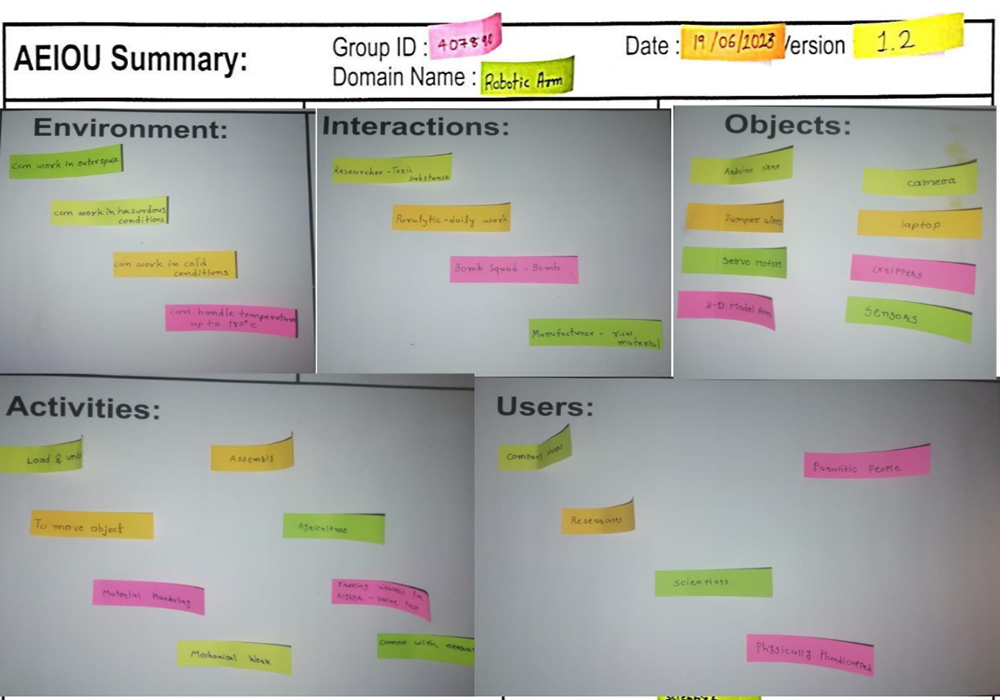 AEIOU Summary:
Group ID : 407890
Date : 19/06/2023
Version 1.2
Domain Name : Robotic Arm
Environment:
can work in outerspace
can work in hazardous
conditions
can work in cold
conditions
can handle temperature
up to 180°c
Interactions:
Researcher - Toxic
substance
Paralytic - daily work
Bomb Squad - Bomb
Manufacturer - raw
material
Objects:
Arduino Nano
camera
Jumper wires
laptop
Servo Motors
Grippers
3-D Model Arm
Sensors
Activities:
Load &
Assembly
To move object
Agriculture
Material Handaling
Freeing workers for
higher - value task
Mechanical Work
connect with
Users:
Company
Paralitic People
Researchers
Scientists
Physically Handicapped